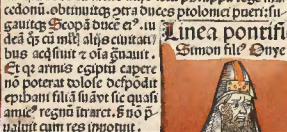 cedonū obtinuitqȝ ꝯtra duces ptolomei pueri: su
gauitqȝ Scopā ducē eꝰ. iu
deā qȝ cū mltꝭ alijs ciuitati
bus acqſiuit ⁊ oīa gnauit.
Et qꝛ armis egiptū capere
nō poterat dolose deſpōdit
epiphani filiā ſuā vt ſic quaſi
amicꝰ regnū irꝛet. ſꝫ nō p̄
ualuit cum res innotuit.
Linea pontifi
Simon filꝰ Onye